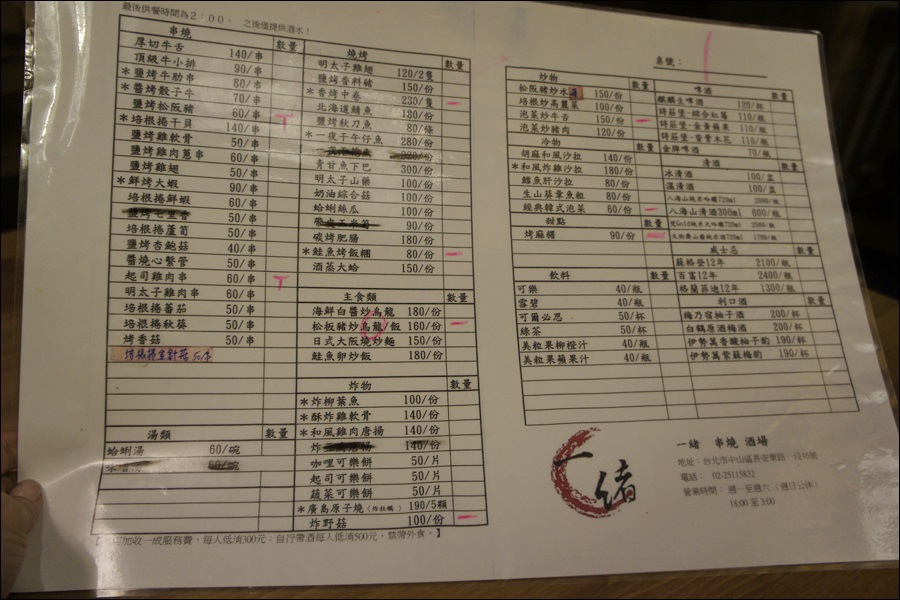 最後供餐時間為2:00. 之後僅提供酒水!
串燒 數量
厚切牛舌 140/串
頂級牛小排 90/串
*鹽烤牛肋串 80/串
*醬烤骰子牛 70/串
鹽烤松阪豬 60/串
*培根捲干貝 140/串
鹽烤雞軟骨 50/串
鹽烤雞肉蔥串 60/串
鹽烤雞翅 50/串
*鮮烤大蝦 90/串
培根捲鮮蝦 60/串
鹽烤七里香 50/串
培根捲蘆筍 50/串
鹽烤杏鮑菇 40/串
醬燒心繫管 50/串
起司雞肉串 60/串
明太子雞肉串 60/串
培根捲蕃茄 50/串
培根捲秋葵 50/串
烤香菇 50/串
培根捲金針菇 50/串
湯類 數量
蛤蜊湯 60/碗
60/碗
燒烤 數量
明太子雞翅 120/2隻
鹽烤香料豬 150/份
*香烤中卷 230/隻
北海道鯖魚 180/份
鹽烤秋刀魚 80/條
*一夜干午仔魚 280/份
320/份
青甘魚下巴 300/份
明太子山藥 100/份
奶油綜合菇 100/份
蛤蜊絲瓜 100/份
90/份
碳烤肥腸 180/份
*鮭魚烤飯糰 80/份
酒蒸大蛤 150/份
主食類 數量
海鮮白醬炒烏龍 180/份
松板豬炒烏龍/飯 160/份
日式大阪燒炒麵 150/份
鮭魚卵炒飯 180/份
炸物 數量
*炸柳葉魚 100/份
*酥炸雞軟骨 140/份
*和風雞肉唐揚 140/份
炸 140/份
咖哩可樂餅 50/片
起司可樂餅 50/片
蔬菜可樂餅 50/片
*廣島原子燒(炸牡蠣) 190/5顆
炸野菇 100/份
加收一成服務費,每人低消300元;自行帶酒每人低消500元,請帶外食。】
桌號:
炒物 數量
松阪豬炒水蓮 150/份
培根炒高麗菜 100/份
泡菜炒牛舌 150/份
泡菜炒豬肉 120/份
冷物 數量
胡麻和風沙拉 140/份
*和風炸雞沙拉 180/份
鱈魚肝沙拉 80/份
生山葵章魚粒 80/份
經典韓式泡菜 60/份
甜點 數量
烤麻糬 90/份
飲料 數量
可樂 40/瓶
雪碧 40/瓶
可爾必思 50/杯
綠茶 50/杯
美粒果柳橙汁 40/瓶
美粒果蘋果汁 40/瓶
啤酒 數量
麒麟生啤酒 120/杯
詩莊堡-綜合紅莓 110/瓶
詩莊堡-金黃蘋果 110/瓶
詩莊堡-香脊木花 110/瓶
金牌啤酒 70/瓶
清酒 數量
冰清酒 100/盅
溫清酒 100/盅
八海山純米吟釀720ml 2000/瓶
八海山清酒300ml 600/瓶
2500/瓶
1700/瓶
威士忌 數量
蘇格登12年 2100/瓶
百富12年 2400/瓶
格蘭菲迪12年 1300/瓶
利口酒 數量
梅乃宿柚子酒 200/杯
白鶴原酒梅酒 200/杯
伊勢萬香酸柚子酌 190/杯
伊勢萬紫蘇梅酌 190/杯
一緒
一緒 串燒 酒場
地址:台北市中山區長安東路一段45號
電話: 02-25115832
營業時間: 週一至週六 (週日公休)
18:00 至 3:00